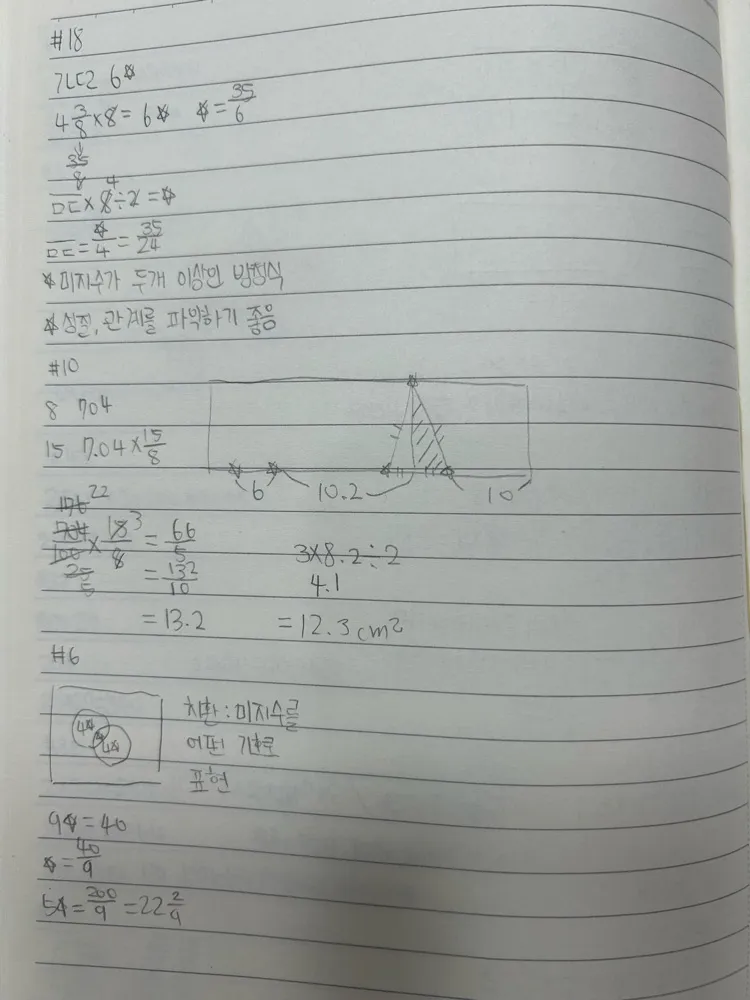 #18
ㄱㄴㄷㄹ 6☆
4 3/8 × 8 = 6☆ ☆ = 35/6
35/8 4
ㅁㄷ × 8 ÷ 2 = ☆
ㅁㄷ = ☆/4 = 35/24
☆미지수가 두개 이상인 방정식
☆성질, 관계를 파악하기 좋음
#10
8 704
15 7.04 × 15/8
6 10.2 10
176 22
704/100 × 15/8 3 = 66/5
25 5 = 132/10
= 13.2
3×8.2÷2
4.1
= 12.3 cm²
#6
4☆ ☆ 4☆
치환 : 미지수를
어떤 기호로
표현
9☆ = 40
☆ = 40/9
5☆ = 200/9 = 22 2/9